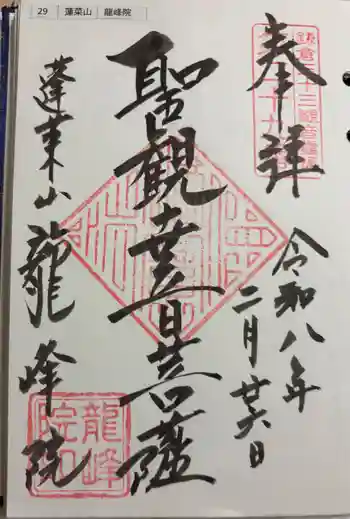 29 蓬菜山 龍峰院
奉拝
鎌倉三十三観音霊場
第二十九番
令和八年
二月廿六日
聖観世音菩薩
蓬莱山 龍峰院
龍峰院印